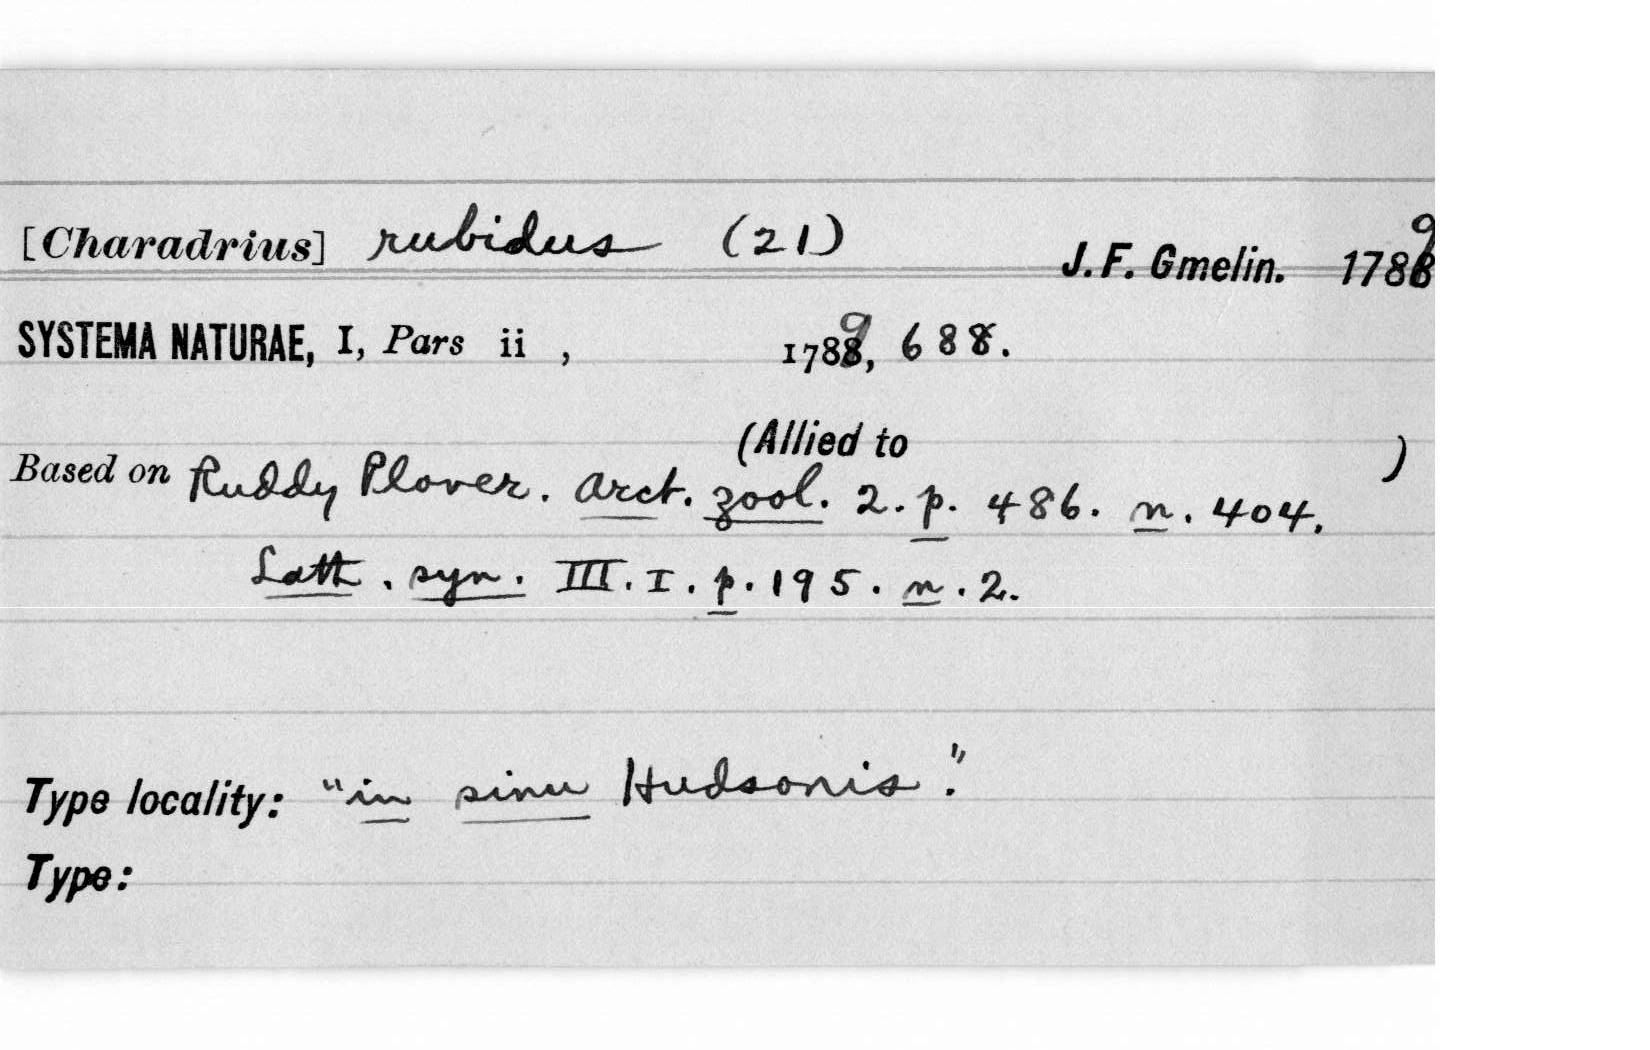 [Charadrius] rubidus (21) J. F. Gmelin. 1789
SYSTEMA NATURAE, I, Pars ii , 1789, 688.
(Allied to )
Based on Ruddy Plover. Arct. zool. 2. p. 486. n. 404.
Lath. syn. III. I. p. 195. n. 2.
Type locality: "in sinu Hudsonis."
Type: